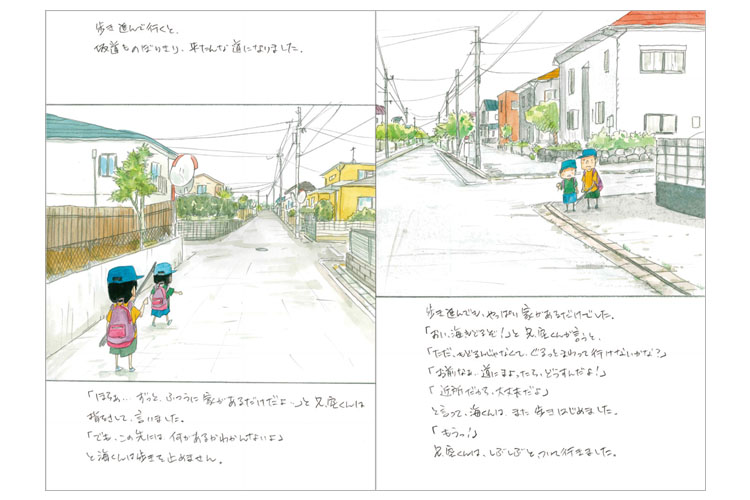 歩き進んで行くと、
坂道ものぼりきり、平たんな道になりました。
「ほらぁ…ずっと、ふつうに家があるだけだよ〜」と兄空くんは
指をさして、言いました。
「でも、この先には、何があるかわかんないよ」
と海くんは歩きを止めません。
歩き進んでも、やっぱり家があるだけでした。
「おい、海もどるぞ!」と兄空くんが言うと、
「ただ、もどるんじゃなくて、ぐるっとまわって行けないかな?」
「お前なぁ、道にまよったら、どうすんだよ!」
「近所だから、大丈夫だよ」
と言って、海くんは、また歩きはじめました。
「もうっ!」
兄空くんは、しぶしぶとついて行きました。